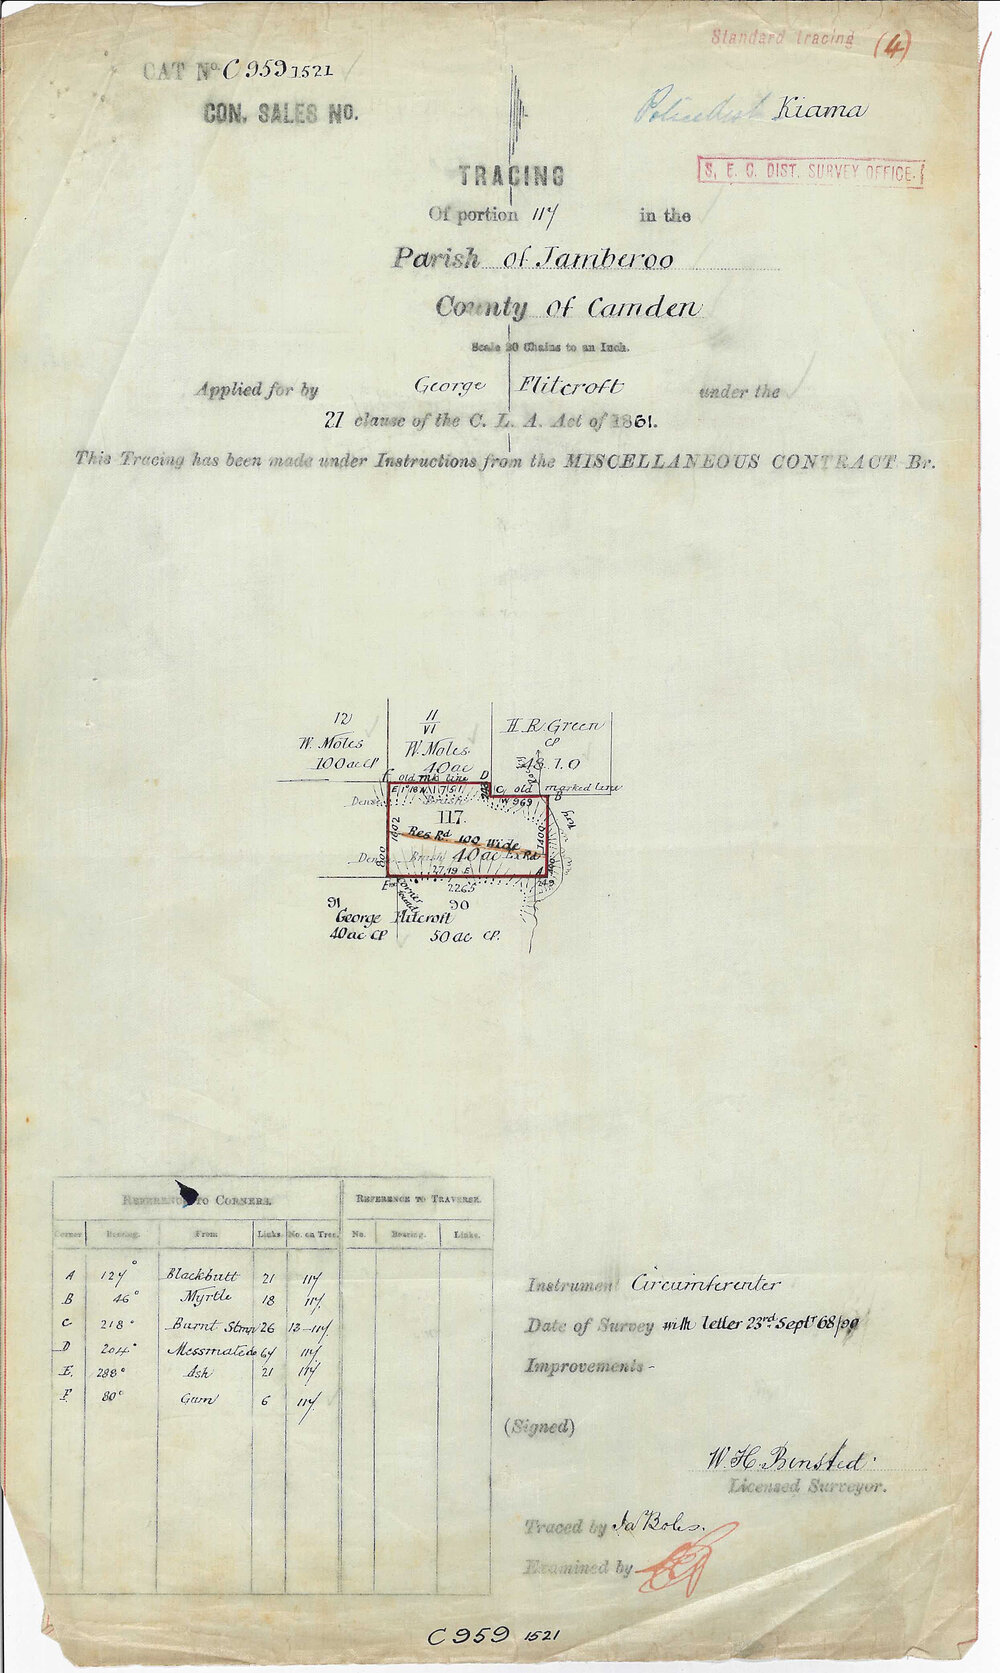 Standard tracing (4)
CAT No. C 959 1521
CON. SALES NO.
Police Dist Kiama
S. E. C. DIST. SURVEY OFFICE.
TRACING
Of portion 117 in the
Parish of Jamberoo
County of Camden
Scale 20 Chains to an Inch.
Applied for by George Flitcroft under the
21 clause of the C. L. A. Act of 1861.
This Tracing has been made under Instructions from the MISCELLANEOUS CONTRACT Br.
12
W. Moles
100 ac CP
11
VI
W. Moles
40 ac
H. R. Green
CP
48. 1. 0
F old mk line D
C old marked line
E 1° 18' N 1751
W 969
B
Dense Brush
117.
1002
1400
Res Rd 100 Wide
Ex Rd
800
Dense Brush 40 ac
2719 E
A
E
2265
249
corner
91
90
George Flitcroft
40 ac CP
50 ac CP.
REFERENCE TO CORNERS.
REFERENCE TO TRAVERSE.
Corner Bearing. From Links. No. on Tree.
No. Bearing. Links.
A 127° Blackbutt 21 117
B 46° Myrtle 18 117.
C 218° Burnt Stmp 26 13-117
D 204° Messmate 64 117
E. 288° Ash 21 117
F 80° Gum 6 117.
Instrument Circumferenter
Date of Survey with letter 23rd Septr 68/99
Improvements -
(Signed)
W. H. Binsted.
Licensed Surveyor.
Traced by Ja Boles.
Examined by
C 959 1521